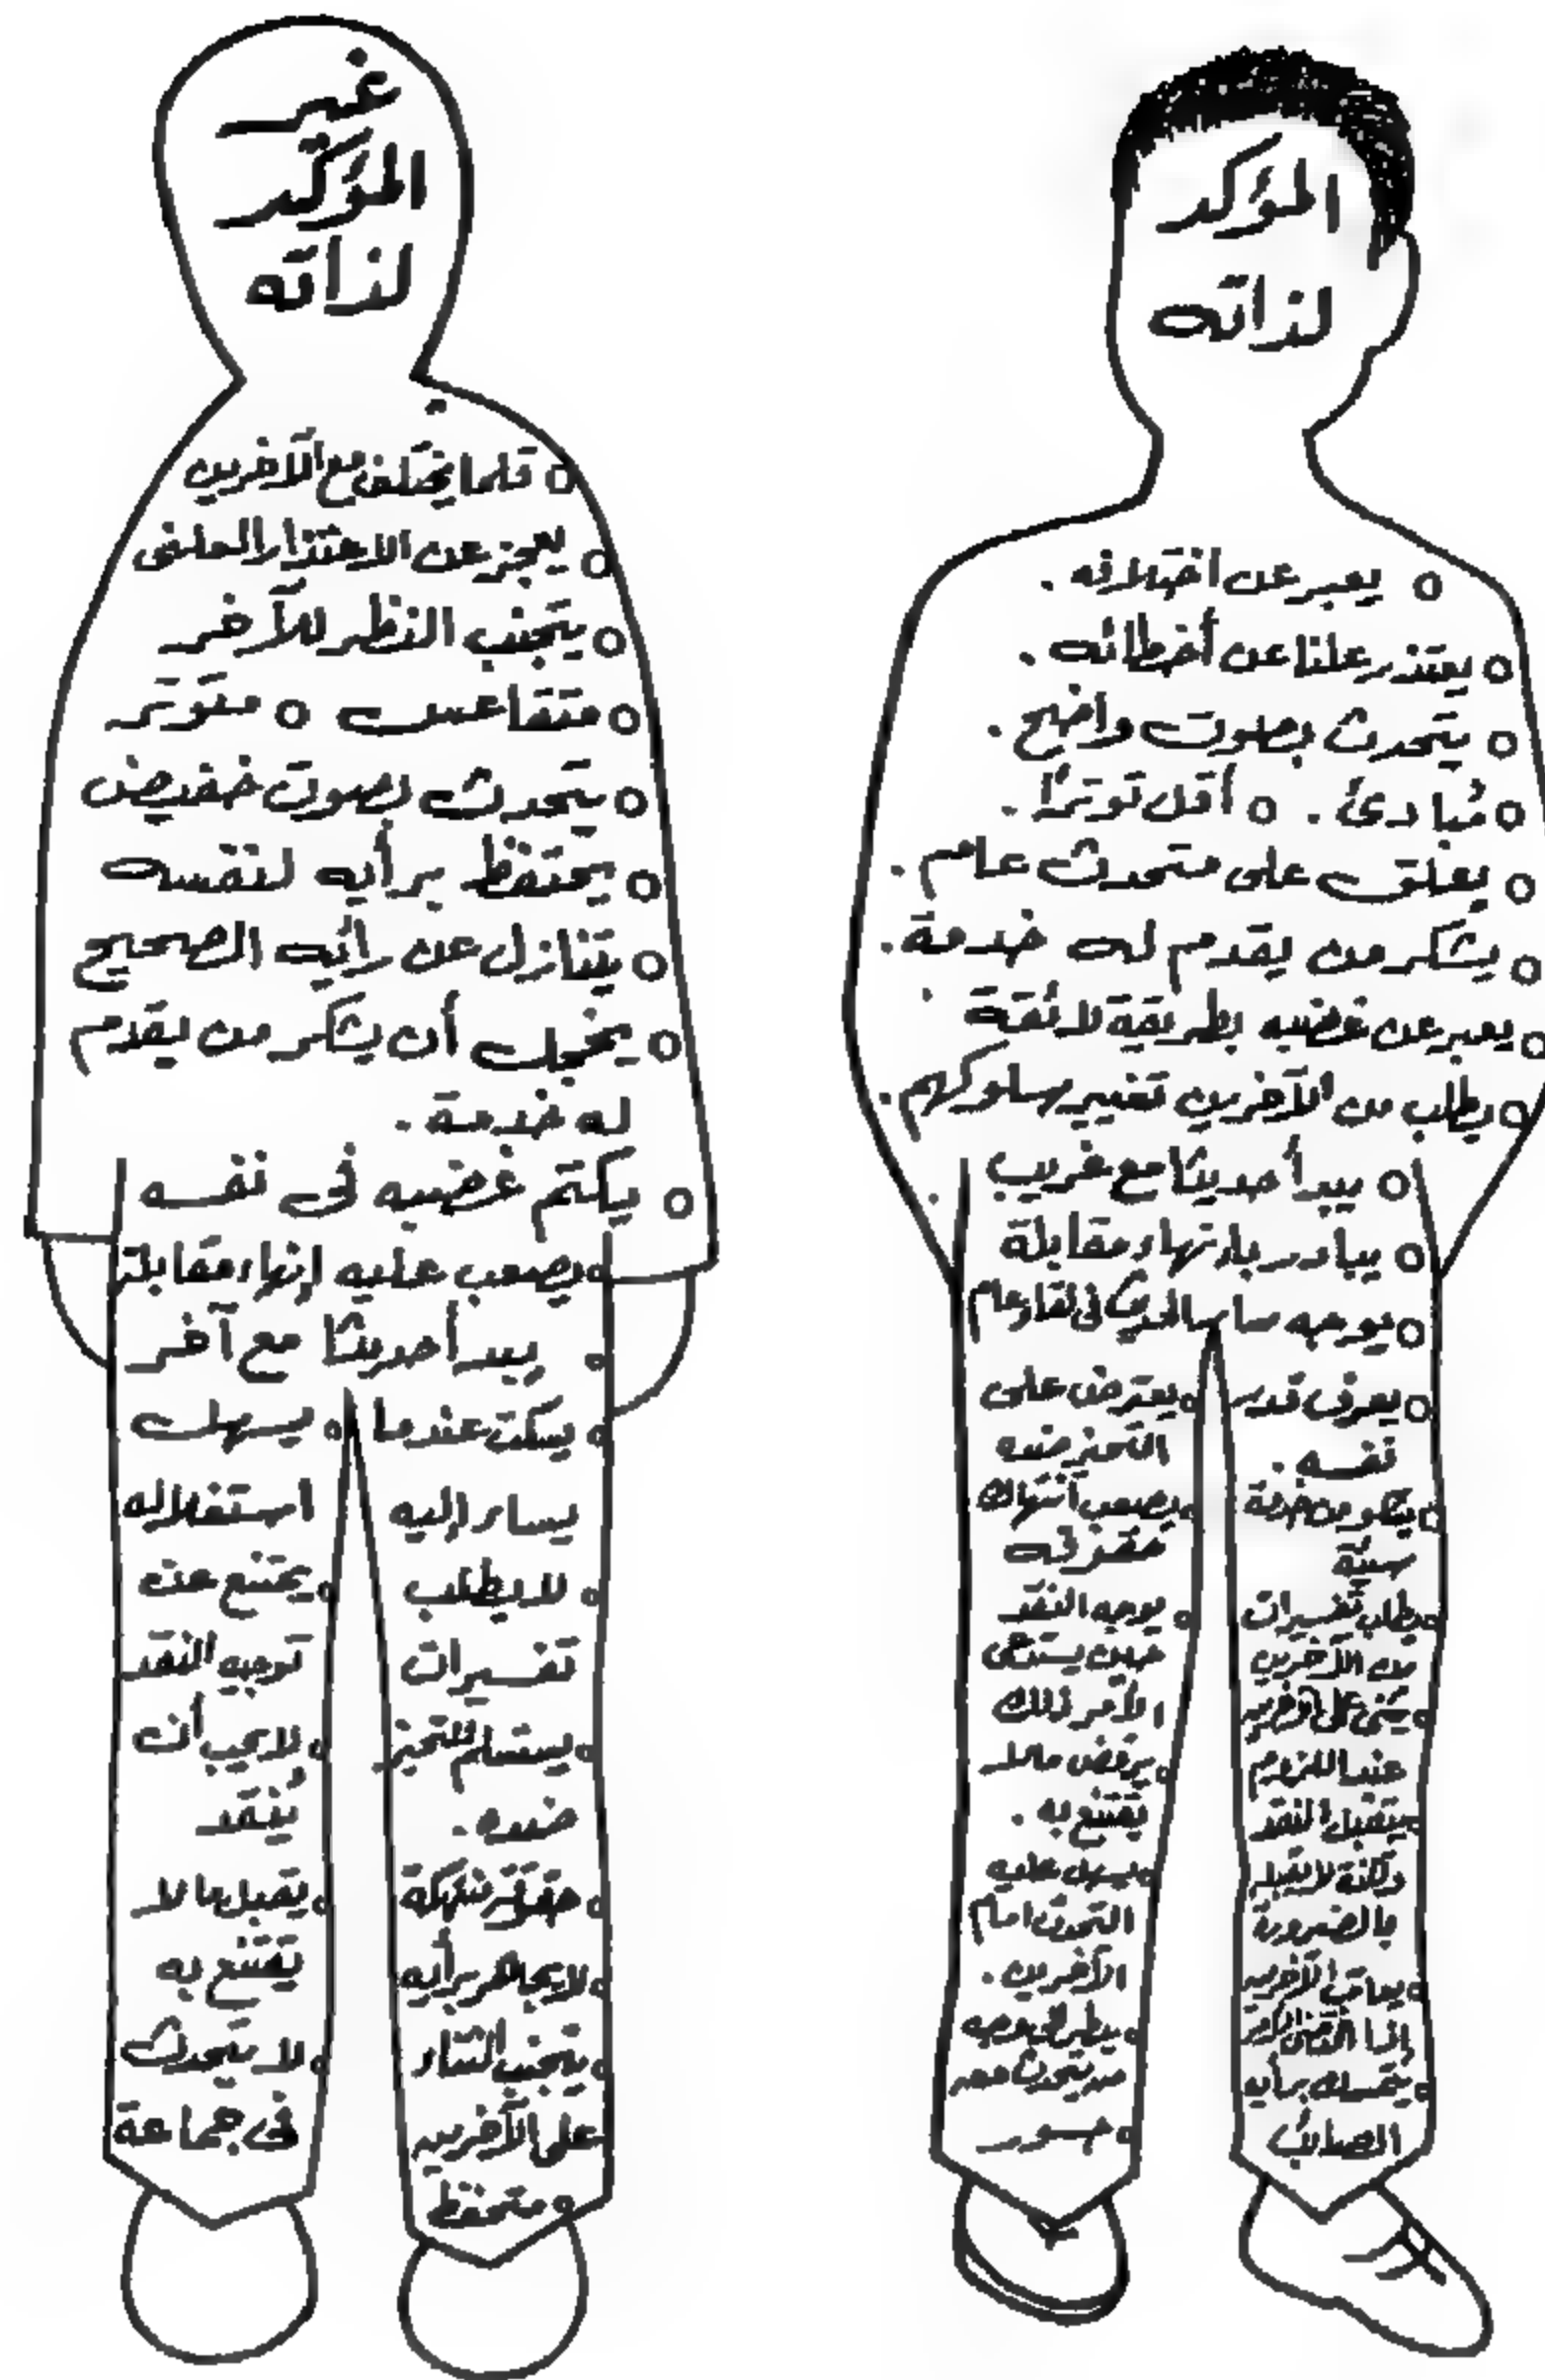 المؤكد
لذاته
يعبر عن اختلافه .
يعتذر علنا عن أخطائه .
يتحدث بصوت واضح .
مُبادئ . أقل توترًا .
يعلق على متحدث عام .
يشكر من يقدم له خدمة .
يعبر عن غضبه بطريقة لائقة .
يطلب من الآخرين تغيير سلوكهم .
يبدأ حديثا مع غريب .
يبادر بإنهاء مقابلة
يوجه مسار الحديث في لقاء عام
يعرف قدر
نفسه .
يشكو من خدمة
سيئة
يطلب تفسيرات
من الآخرين
يثنى على الآخرين
عند اللزوم
يتقبل النقد
ولكنه لا يقبله
بالضرورة
يعاتب الآخرين
إذا اقتضى الأمر
يتمسك برأيه
الصائب
يعترض على
التحيز ضده
يصعب انتهاك
حقوقه
يوجه النقد
حين يستدعى
الأمر ذلك
يرفض ما لا
يقتنع به .
يسهل عليه
التحدث أمام
الآخرين .
ينظر فى وجه
من يتحدث معه
جسور
غير
المؤكد
لذاته
قلما يختلف مع الآخرين
يعجز عن الاعتذار العلنى
يتجنب النظر للآخر
متقاعس متوتر
يتحدث بصوت خفيض
يحتفظ برأيه لنفسه
يتنازل عن رأيه الصحيح
يخجل أن يشكر من يقدم
له خدمة .
يكتم غضبه فى نفسه
يصعب عليه إنهاء مقابلة
يبدأ حديثا مع آخر
يسكت عندما
يساء إليه
لا يطلب
تفسيرات
يستسلم للتحيز
ضده .
حقوقه منتهكة
لا يجاهر برأيه
يتجنب الثناء
على الآخرين
متحفظ
يسهل
استغلاله
يمتنع عن
توجيه النقد
لا يحب أن
يُنقد
يقبل ما لا
يقتنع به
لا يتحدث
فى جماعة